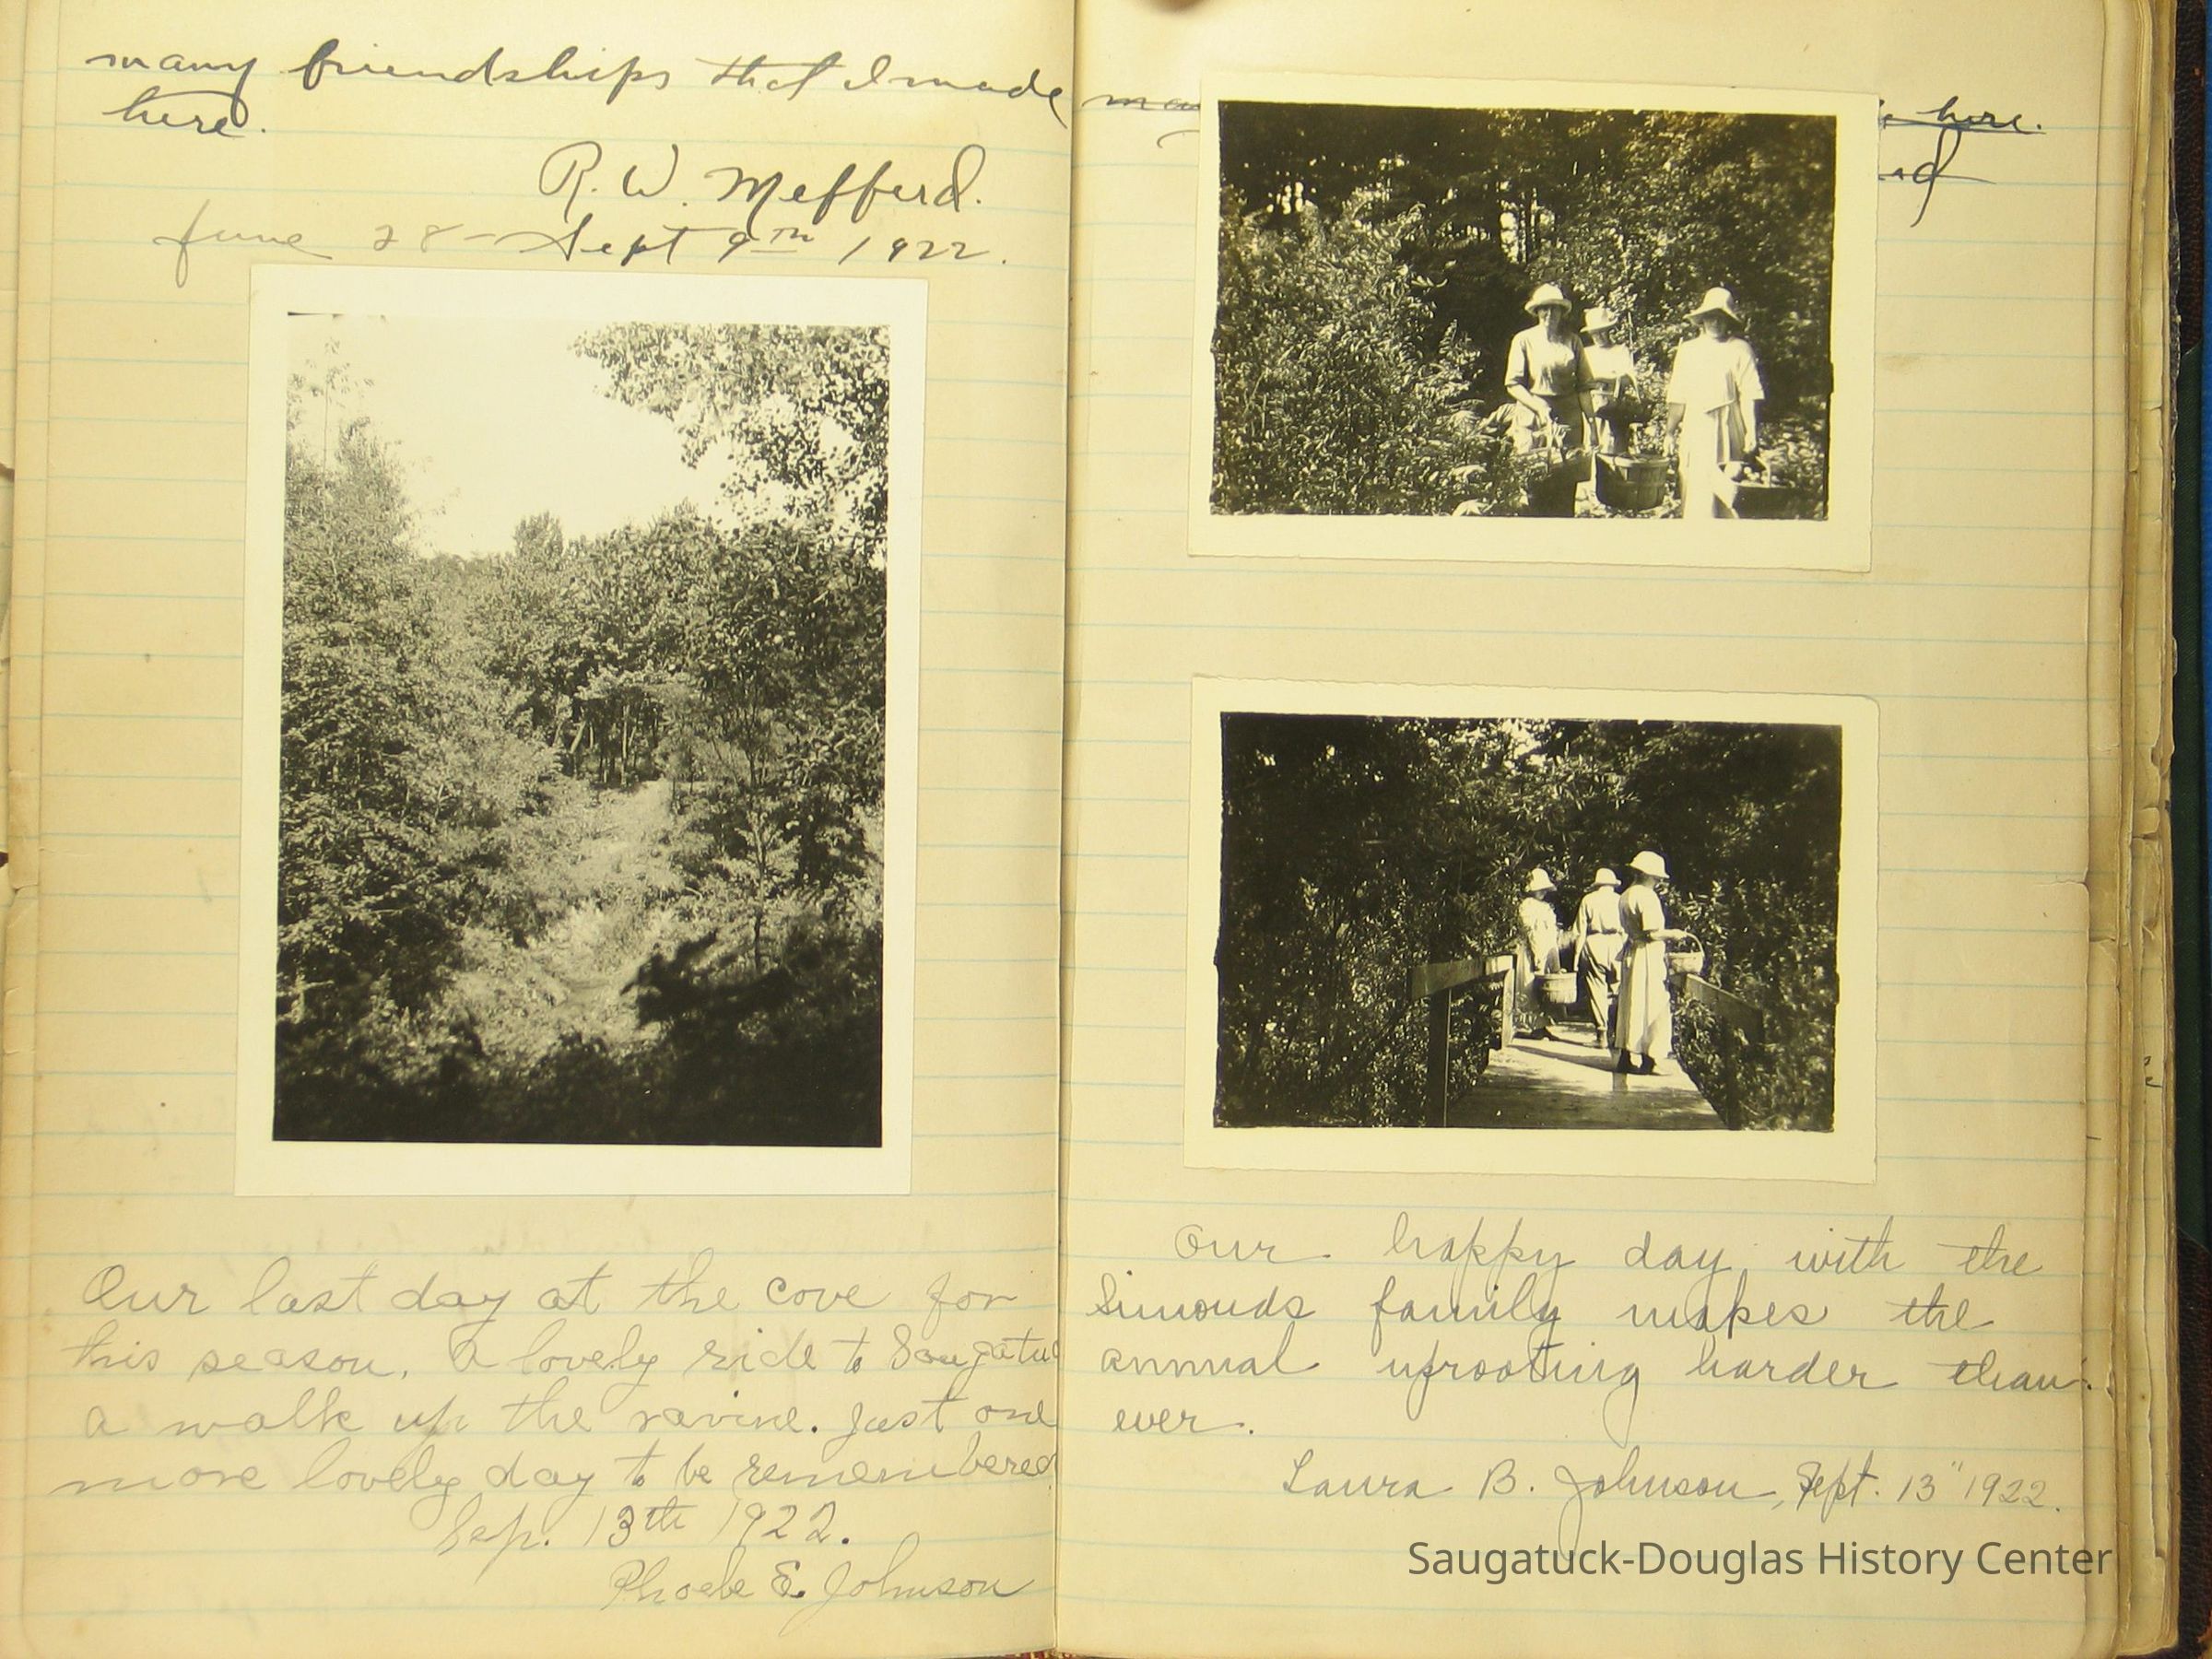 many friendships that I made
here.
R. W. Mefferd.
June 28 - Sept 9th 1922.
Our last day at the cove for
this season. A lovely ride to Saugatuc
a walk up the ravine. Just one
more lovely day to be remembered
Sep. 13th 1922.
Phoebe E. Johnson
here.
Our happy day with the
Simonds family makes the
annual uprooting harder than
ever.
Laura B. Johnson, Sept. 13" 1922.
Saugatuck-Douglas History Center